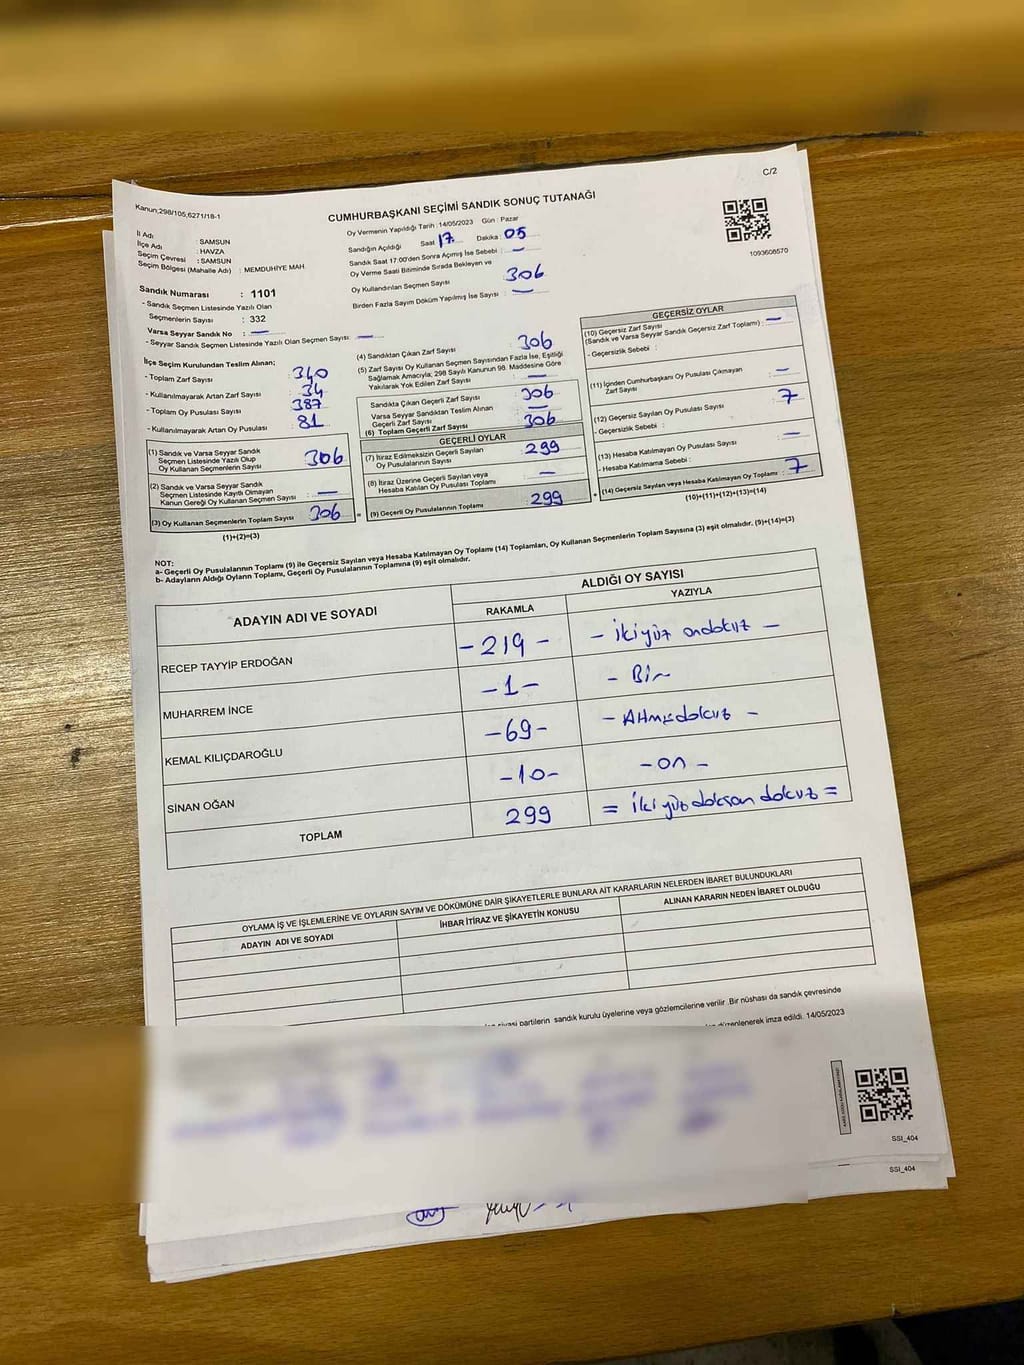 C/2
Kanun;298/105,6271/18-1
CUMHURBAŞKANI SEÇİMİ SANDIK SONUÇ TUTANAĞI
Oy Vermenin Yapıldığı Tarih : 14/05/2023 Gün : Pazar
İl Adı : SAMSUN
İlçe Adı : HAVZA
Seçim Çevresi : SAMSUN
Seçim Bölgesi (Mahalle Adı) : MEMDUHİYE MAH.
Sandığın Açıldığı Saat 17 Dakika : 05
Sandık Saat 17.00'den Sonra Açılmış İse Sebebi : —
Oy Verme Saati Bitiminde Sırada Bekleyen ve
Oy Kullandırılan Seçmen Sayısı 306
Birden Fazla Sayım Döküm Yapılmış İse Sayısı : —
1093608570
Sandık Numarası : 1101
- Sandık Seçmen Listesinde Yazılı Olan
Seçmenlerin Sayısı : 332
Varsa Seyyar Sandık No : —
- Seyyar Sandık Seçmen Listesinde Yazılı Olan Seçmen Sayısı : —
İlçe Seçim Kurulundan Teslim Alınan;
- Toplam Zarf Sayısı : 340
- Kullanılmayarak Artan Zarf Sayısı : 34
- Toplam Oy Pusulası Sayısı : 387
- Kullanılmayarak Artan Oy Pusulası : 81
(1) Sandık ve Varsa Seyyar Sandık
Seçmen Listesinde Yazılı Olup
Oy Kullanan Seçmenlerin Sayısı 306
(2) Sandık ve Varsa Seyyar Sandık
Seçmen Listesinde Kayıtlı Olmayan
Kanun Gereği Oy Kullanan Seçmen Sayısı : —
(3) Oy Kullanan Seçmenlerin Toplam Sayısı 306 =
(1)+(2)=(3)
(4) Sandıktan Çıkan Zarf Sayısı : 306
(5) Zarf Sayısı Oy Kullanan Seçmen Sayısından Fazla İse, Eşitliği
Sağlamak Amacıyla; 298 Sayılı Kanunun 98. Maddesine Göre
Yakılarak Yok Edilen Zarf Sayısı : —
Sandıkta Çıkan Geçerli Zarf Sayısı : 306
Varsa Seyyar Sandıktan Teslim Alınan
Geçerli Zarf Sayısı : —
(6) Toplam Geçerli Zarf Sayısı : 306
GEÇERLİ OYLAR
(7) İtiraz Edilmeksizin Geçerli Sayılan
Oy Pusulalarının Sayısı : 299
(8) İtiraz Üzerine Geçerli Sayılan veya
Hesaba Katılan Oy Pusulası Toplamı : —
(9) Geçerli Oy Pusulalarının Toplamı : 299 +
GEÇERSİZ OYLAR
(10) Geçersiz Zarf Sayısı
(Sandık ve Varsa Seyyar Sandık Geçersiz Zarf Toplamı) : —
- Geçersizlik Sebebi :
(11) İçinden Cumhurbaşkanı Oy Pusulası Çıkmayan
Zarf Sayısı : —
(12) Geçersiz Sayılan Oy Pusulası Sayısı : 7
- Geçersizlik Sebebi :
(13) Hesaba Katılmayan Oy Pusulası Sayısı : —
- Hesaba Katılmama Sebebi :
(14) Geçersiz Sayılan veya Hesaba Katılmayan Oy Toplamı : 7
(10)+(11)+(12)+(13)=(14)
NOT:
a- Geçerli Oy Pusulalarının Toplamı (9) ile Geçersiz Sayılan veya Hesaba Katılmayan Oy Toplamı (14) Toplamları, Oy Kullanan Seçmenlerin Toplam Sayısına (3) eşit olmalıdır. (9)+(14)=(3)
b- Adayların Aldığı Oyların Toplamı, Geçerli Oy Pusulalarının Toplamına (9) eşit olmalıdır.
ADAYIN ADI VE SOYADI ALDIĞI OY SAYISI
RAKAMLA YAZIYLA
RECEP TAYYİP ERDOĞAN -219- - İkiyüz ondokuz -
MUHARREM İNCE -1- - Bir
KEMAL KILIÇDAROĞLU -69- - Altmışdokuz -
SİNAN OĞAN -10- -on -
TOPLAM 299 = İkiyüz doksan dokuz =
OYLAMA İŞ VE İŞLEMLERİNE VE OYLARIN SAYIM VE DÖKÜMÜNE DAİR ŞİKAYETLERLE BUNLARA AİT KARARLARIN NELERDEN İBARET BULUNDUKLARI
ADAYIN ADI VE SOYADI İHBAR İTİRAZ VE ŞİKAYETİN KONUSU ALINAN KARARIN NEDEN İBARET OLDUĞU
partilerin sandık kurulu üyelerine veya gözlemcilerine verilir .Bir nüshası da sandık çevresinde
düzenlenerek imza edildi. 14/05/2023
SSI_404
SSI_404